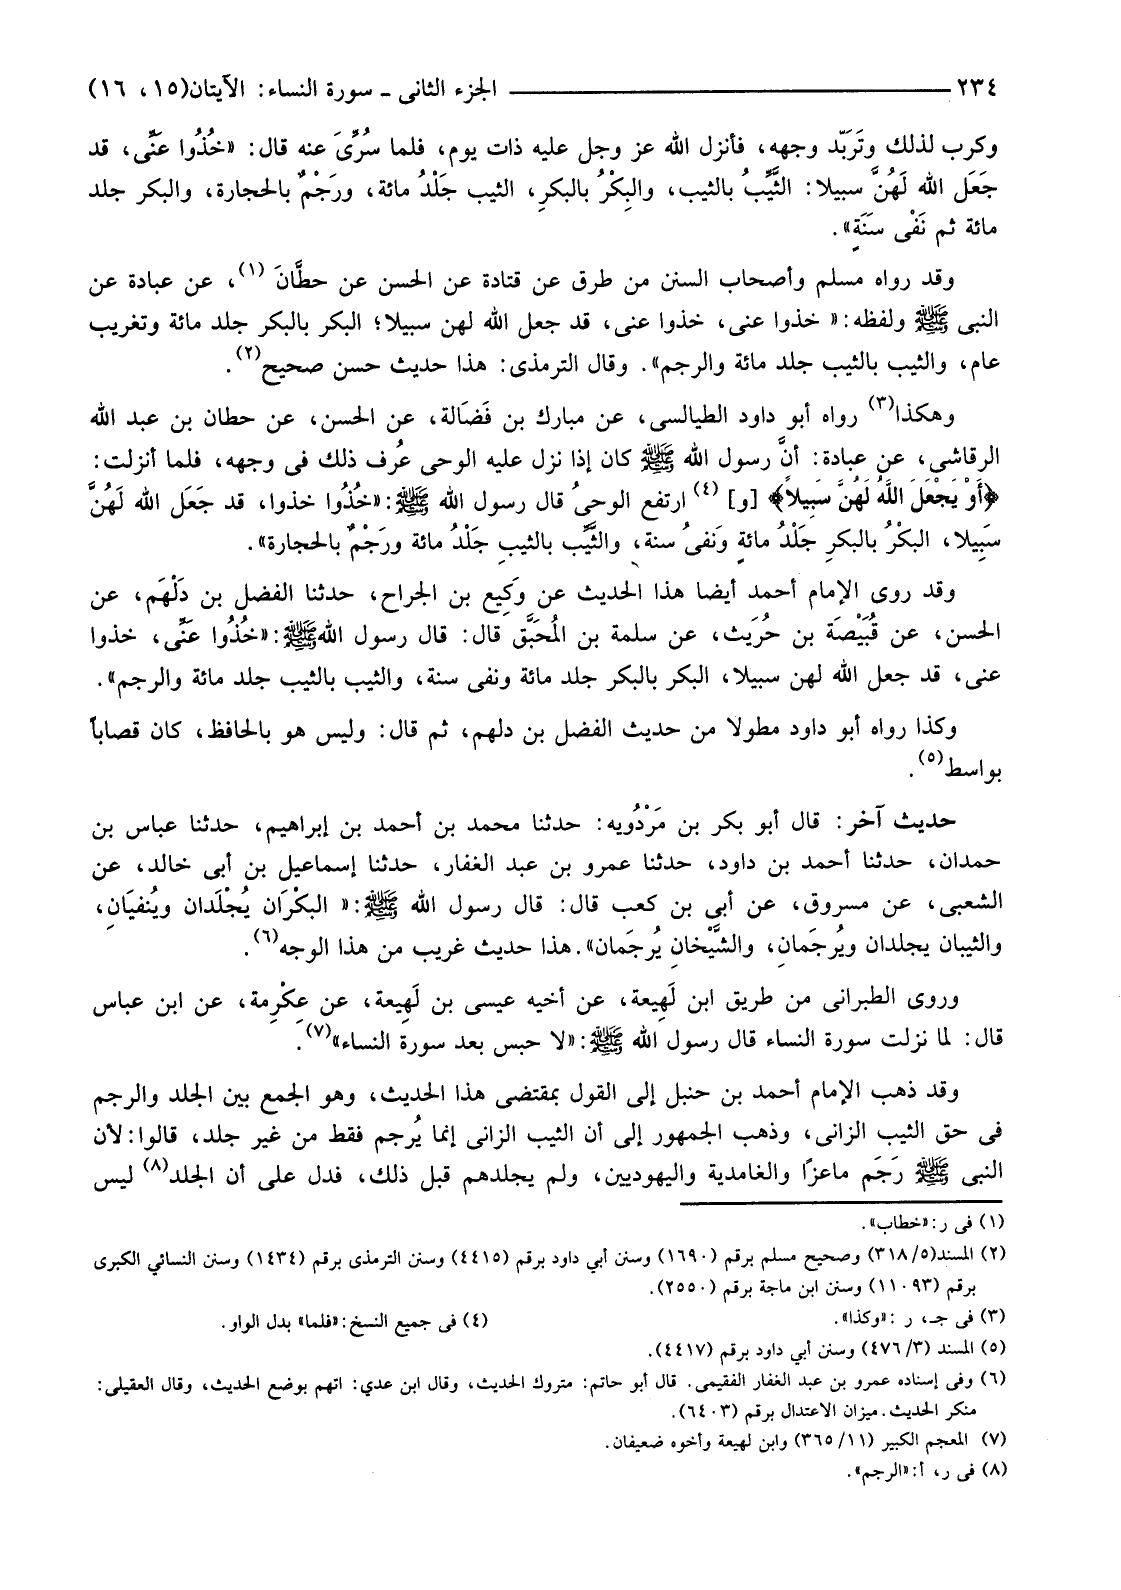 ٢٣٤ ــــــــــــــــــــ الجزء الثانى ـ سورة النساء: الآيتان(١٥، ١٦)
وكرب لذلك وتَرَبّد وجهه، فأنزل الله عز وجل عليه ذات يوم، فلما سُرِّىَ عنه قال: «خُذُوا عَنِّى، قد
جَعَل الله لَهُنَّ سبيلا: الثَّيِّبُ بالثيب، والبِكْرُ بالبكرِ، الثيب جَلْدُ مائة، ورَجْمٌ بالحجارة، والبكر جلد
مائة ثم نَفْى سَنَةٍ».
وقد رواه مسلم وأصحاب السنن من طرق عن قتادة عن الحسن عن حطَّانَ (١)، عن عبادة عن
النبى ﷺ ولفظه:« خذوا عنى، خذوا عنى، قد جعل الله لهن سبيلا؛ البكر بالبكر جلد مائة وتغريب
عام، والثيب بالثيب جلد مائة والرجم». وقال الترمذى: هذا حديث حسن صحيح(٢).
وهكذا(٣) رواه أبو داود الطيالسى، عن مبارك بن فَضَالة، عن الحسن، عن حطان بن عبد الله
الرقاشى، عن عبادة: أنَّ رسول الله ﷺ كان إذا نزل عليه الوحى عُرف ذلك فى وجهه، فلما أنزلت:
﴿أَوْ يَجْعَلَ اللَّهُ لَهُنَّ سَبِيلاً﴾ [و] (٤) ارتفع الوحىُ قال رسول الله ﷺ:«خُذُوا خذوا، قد جَعَل الله لَهُنَّ
سَبِيلا، البكْرُ بالبكرِ جَلْدُ مائةٍ وَنَفىُ سنة، والثَّيِّب بالثيبِ جَلْدُ مائة ورَجْمٌ بالحجارة».
وقد روى الإمام أحمد أيضا هذا الحديث عن وَكِيع بن الجراح، حدثنا الفضل بن دَلْهَم، عن
الحسن، عن قُبَيْصَة بن حُرَيث، عن سلمة بن المُحَبَّق قال: قال رسول الله ﷺ:«خُذُوا عَنِّى، خذوا
عنى، قد جعل الله لهن سبيلا، البكر بالبكر جلد مائة ونفى سنة، والثيب بالثيب جلد مائة والرجم».
وكذا رواه أبو داود مطولا من حديث الفضل بن دلهم، ثم قال: وليس هو بالحافظ، كان قصاباً
بواسط(٥).
حديث آخر: قال أبو بكر بن مَرْدُويه: حدثنا محمد بن أحمد بن إبراهيم، حدثنا عباس بن
حمدان، حدثنا أحمد بن داود، حدثنا عمرو بن عبد الغفار، حدثنا إسماعيل بن أبى خالد، عن
الشعبى، عن مسروق، عن أبى بن كعب قال: قال رسول الله ﷺ:« البكْرَان يُجْلَدان ويُنفيَانِ،
والثيبان يجلدان ويُرجَمانِ، والشَّيْخانِ يُرجَمان».هذا حديث غريب من هذا الوجه(٦).
وروى الطبرانى من طريق ابن لَهِيعة، عن أخيه عيسى بن لَهِيعة، عن عِكْرِمة، عن ابن عباس
قال: لما نزلت سورة النساء قال رسول الله ﷺ:«لا حبس بعد سورة النساء»(٧).
وقد ذهب الإمام أحمد بن حنبل إلى القول بمقتضى هذا الحديث، وهو الجمع بين الجلد والرجم
فى حق الثيب الزانى، وذهب الجمهور إلى أن الثيب الزانى إنما يُرجم فقط من غير جلد، قالوا:لأن
النبى ﷺ رَجَم ماعزًا والغامدية واليهوديين، ولم يجلدهم قبل ذلك، فدل على أن الجلد(٨) ليس
(١) فى ر:«خطاب».
(٢) المسند(٣١٨/٥) وصحيح مسلم برقم (١٦٩٠) وسنن أبي داود برقم (٤٤١٥) وسنن الترمذى برقم (١٤٣٤) وسنن النسائي الكبرى
برقم (١١٠٩٣) وسنن ابن ماجة برقم (٢٥٥٠).
(٣) فى جـ، ر :«وكذا». (٤) فى جميع النسخ:«فلما» بدل الواو.
(٥) المسند (٤٧٦/٣) وسنن أبي داود برقم (٤٤١٧).
(٦) وفى إسناده عمرو بن عبد الغفار الفقيمى. قال أبو حاتم: متروك الحديث، وقال ابن عدي: اتهم بوضع الحديث، وقال العقيلى:
منكر الحديث.ميزان الاعتدال برقم (٦٤٠٣).
(٧) المعجم الكبير (٣٦٥/١١) وابن لهيعة وأخوه ضعيفان.
(٨) فى ر، أ:«الرجم».